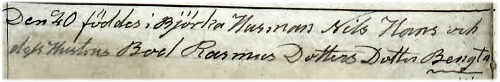 Den 20 föddes i Björka Husman Nils Hans och
dess Hustrus Boel Rasmus Dotters Dotter Bengta